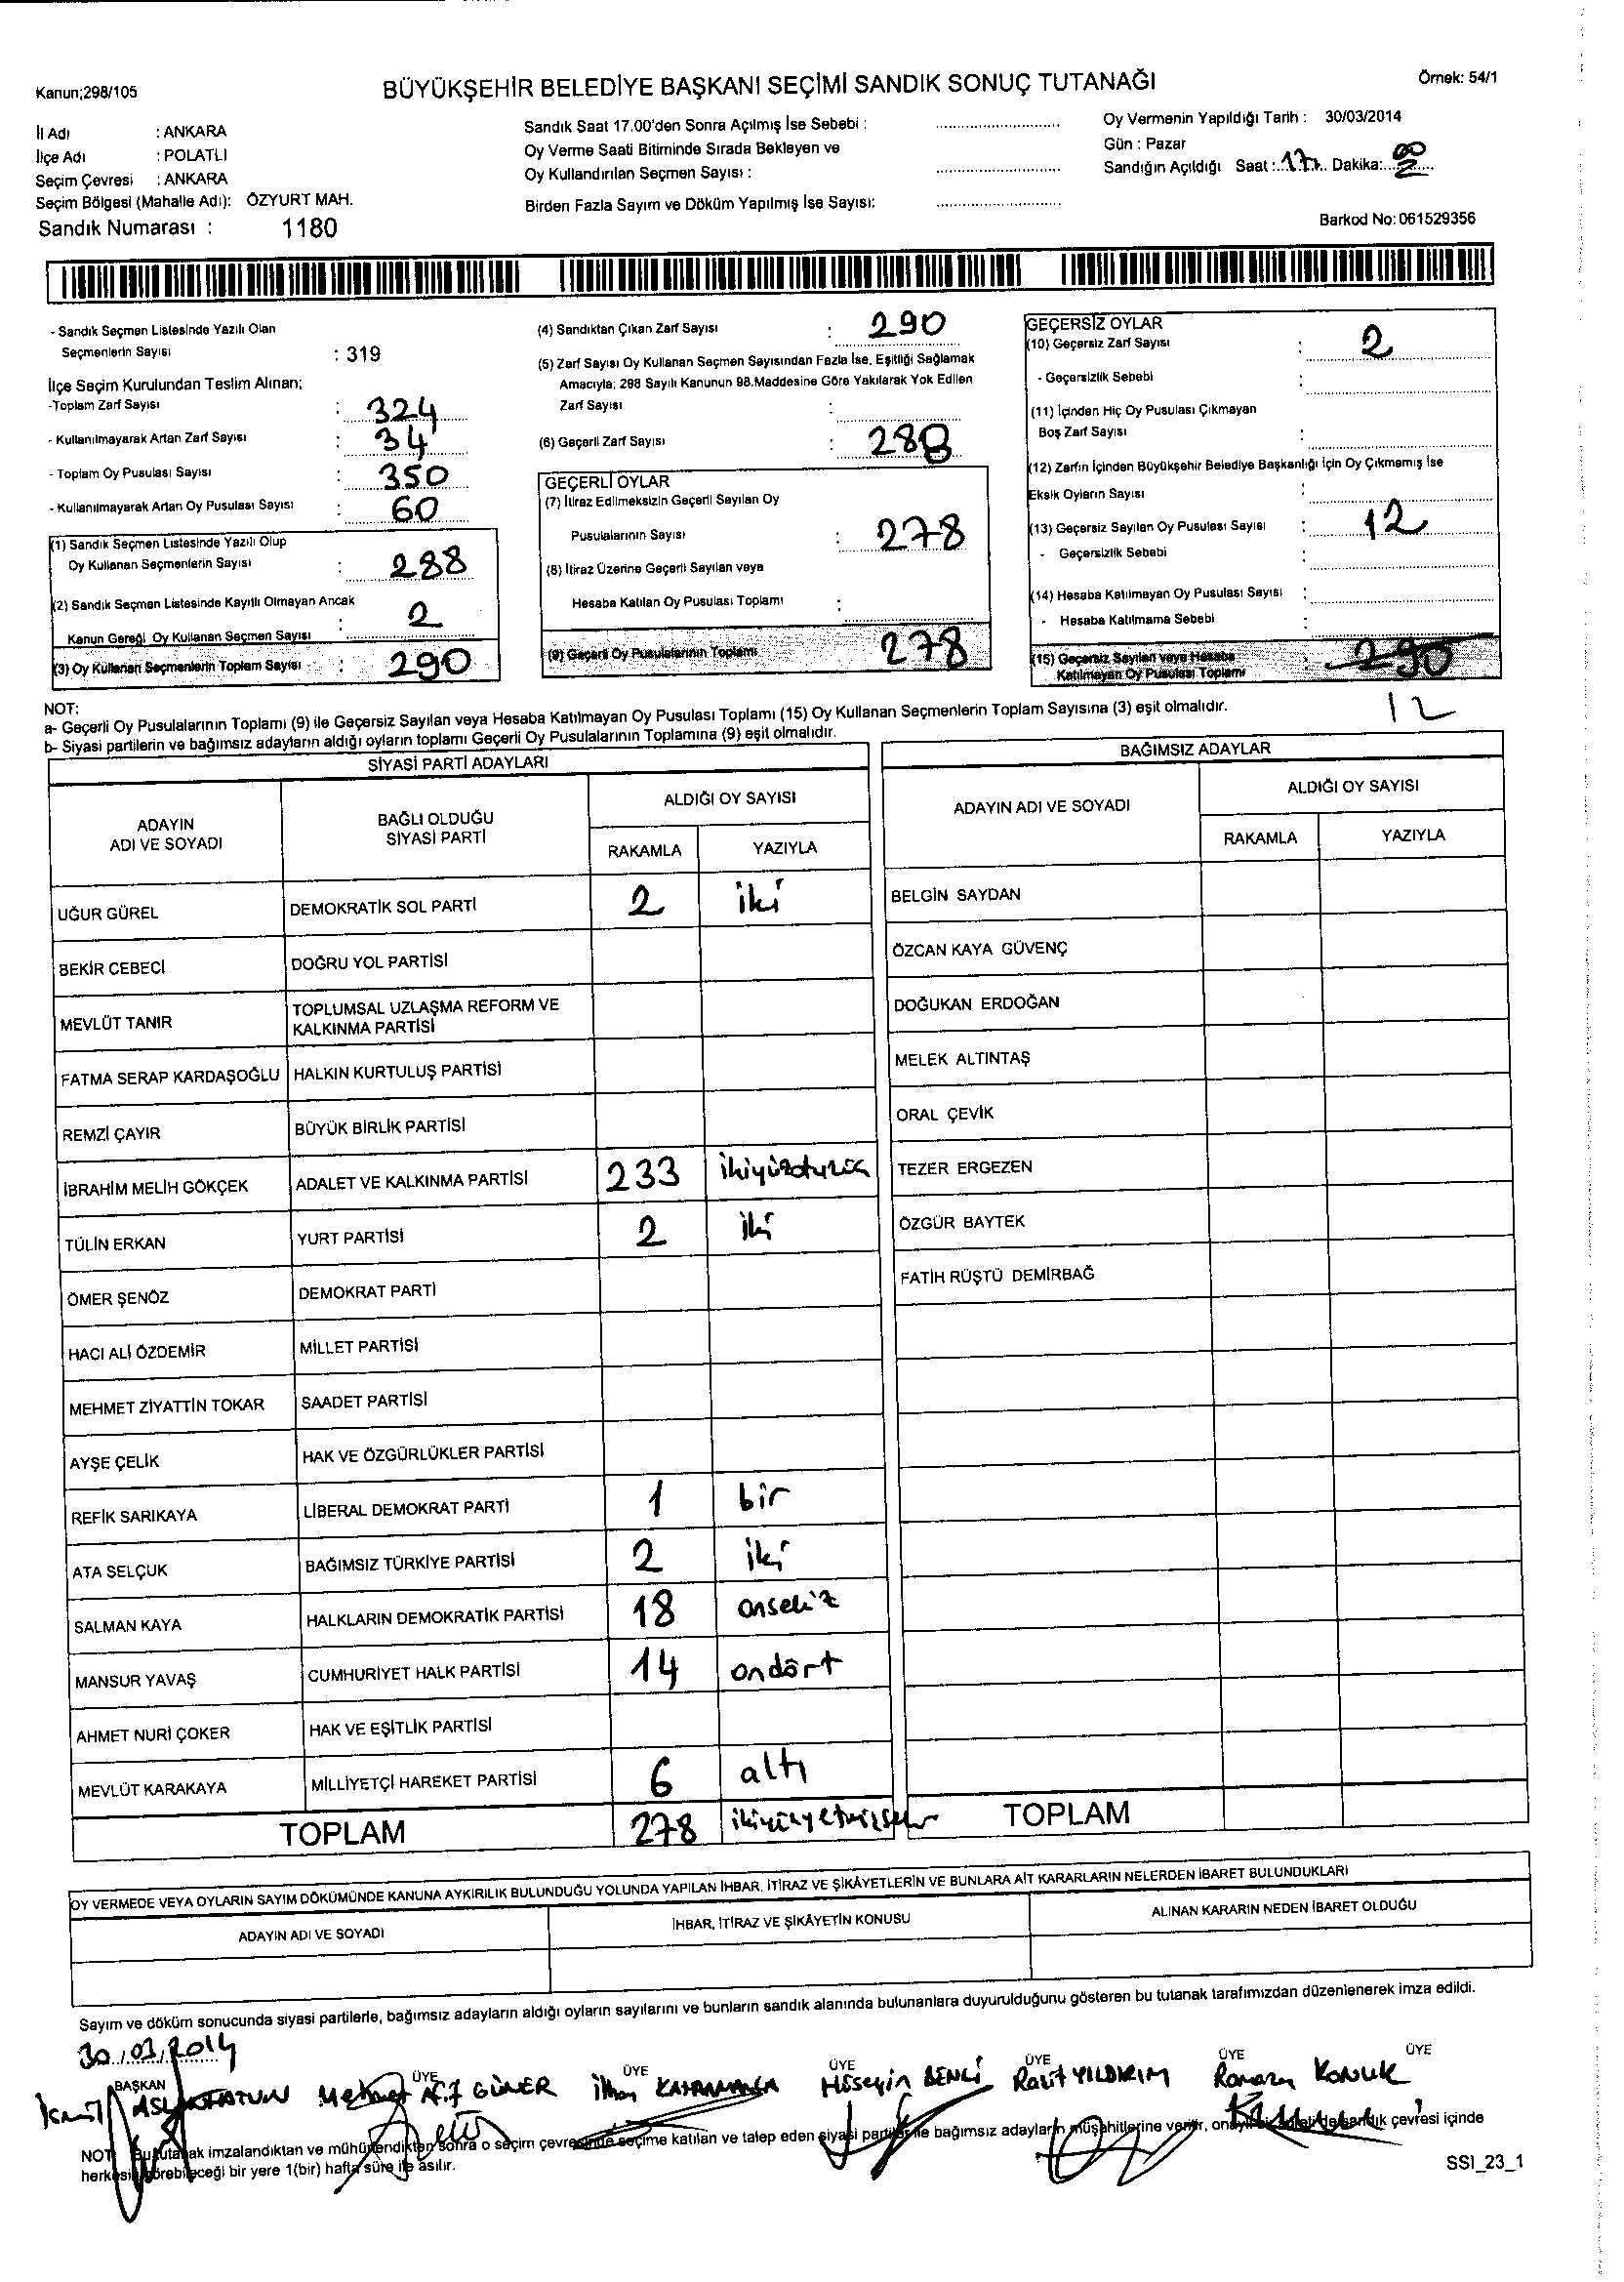 Kanun;298/105
BÜYÜKŞEHİR BELEDİYE BAŞKANI SEÇİMİ SANDIK SONUÇ TUTANAĞI
Örnek: 54/1
İl Adı : ANKARA
İlçe Adı : POLATLI
Seçim Çevresi : ANKARA
Seçim Bölgesi (Mahalle Adı): ÖZYURT MAH.
Sandık Numarası : 1180
Sandık Saat 17.00'den Sonra Açılmış İse Sebebi :
Oy Verme Saati Bitiminde Sırada Bekleyen ve
Oy Kullandırılan Seçmen Sayısı :
Birden Fazla Sayım ve Döküm Yapılmış İse Sayısı:
Oy Vermenin Yapıldığı Tarih : 30/03/2014
Gün : Pazar
Sandığın Açıldığı Saat : 17 Dakika: 00
Barkod No: 061529356
- Sandık Seçmen Listesinde Yazılı Olan
Seçmenlerin Sayısı : 319
İlçe Seçim Kurulundan Teslim Alınan;
-Toplam Zarf Sayısı : 324
- Kullanılmayarak Artan Zarf Sayısı : 34
- Toplam Oy Pusulası Sayısı : 350
- Kullanılmayarak Artan Oy Pusulası Sayısı : 60
(1) Sandık Seçmen Listesinde Yazılı Olup
Oy Kullanan Seçmenlerin Sayısı : 288
(2) Sandık Seçmen Listesinde Kayıtlı Olmayan Ancak
Kanun Gereği Oy Kullanan Seçmen Sayısı : 2
(3) Oy Kullanan Seçmenlerin Toplam Sayısı : 290
(4) Sandıktan Çıkan Zarf Sayısı : 290
(5) Zarf Sayısı Oy Kullanan Seçmen Sayısından Fazla İse, Eşitliği Sağlamak
Amacıyla; 298 Sayılı Kanunun 98.Maddesine Göre Yakılarak Yok Edilen
Zarf Sayısı :
(6) Geçerli Zarf Sayısı : 288
GEÇERLİ OYLAR
(7) İtiraz Edilmeksizin Geçerli Sayılan Oy
Pusulalarının Sayısı : 278
(8) İtiraz Üzerine Geçerli Sayılan veya
Hesaba Katılan Oy Pusulası Toplamı :
(9) Geçerli Oy Pusulalarının Toplamı 278
GEÇERSİZ OYLAR
(10) Geçersiz Zarf Sayısı : 2
- Geçersizlik Sebebi :
(11) İçinden Hiç Oy Pusulası Çıkmayan
Boş Zarf Sayısı :
(12) Zarfın İçinden Büyükşehir Belediye Başkanlığı İçin Oy Çıkmamış İse
Eksik Oyların Sayısı :
(13) Geçersiz Sayılan Oy Pusulası Sayısı : 12
- Geçersizlik Sebebi :
(14) Hesaba Katılmayan Oy Pusulası Sayısı :
- Hesaba Katılmama Sebebi :
(15) Geçersiz Sayılan veya Hesaba
Katılmayan Oy Pusulası Toplamı : 290
12
NOT:
a- Geçerli Oy Pusulalarının Toplamı (9) ile Geçersiz Sayılan veya Hesaba Katılmayan Oy Pusulası Toplamı (15) Oy Kullanan Seçmenlerin Toplam Sayısına (3) eşit olmalıdır.
b- Siyasi partilerin ve bağımsız adayların aldığı oyların toplamı Geçerli Oy Pusulalarının Toplamına (9) eşit olmalıdır.
SİYASİ PARTİ ADAYLARI
ADAYIN ADI VE SOYADI
BAĞLI OLDUĞU SİYASİ PARTİ
ALDIĞI OY SAYISI
RAKAMLA YAZIYLA
UĞUR GÜREL DEMOKRATİK SOL PARTİ 2 iki
BEKİR CEBECİ DOĞRU YOL PARTİSİ
MEVLÜT TANIR TOPLUMSAL UZLAŞMA REFORM VE KALKINMA PARTİSİ
FATMA SERAP KARDAŞOĞLU HALKIN KURTULUŞ PARTİSİ
REMZİ ÇAYIR BÜYÜK BİRLİK PARTİSİ
İBRAHİM MELİH GÖKÇEK ADALET VE KALKINMA PARTİSİ 233
TÜLİN ERKAN YURT PARTİSİ 2 iki
ÖMER ŞENÖZ DEMOKRAT PARTİ
HACI ALİ ÖZDEMİR MİLLET PARTİSİ
MEHMET ZİYATTİN TOKAR SAADET PARTİSİ
AYŞE ÇELİK HAK VE ÖZGÜRLÜKLER PARTİSİ
REFİK SARIKAYA LİBERAL DEMOKRAT PARTİ 1 bir
ATA SELÇUK BAĞIMSIZ TÜRKİYE PARTİSİ 2 iki
SALMAN KAYA HALKLARIN DEMOKRATİK PARTİSİ 18 onsekiz
MANSUR YAVAŞ CUMHURİYET HALK PARTİSİ 14 ondört
AHMET NURİ ÇOKER HAK VE EŞİTLİK PARTİSİ
MEVLÜT KARAKAYA MİLLİYETÇİ HAREKET PARTİSİ 6 altı
TOPLAM 278
BAĞIMSIZ ADAYLAR
ADAYIN ADI VE SOYADI
ALDIĞI OY SAYISI
RAKAMLA YAZIYLA
BELGİN SAYDAN
ÖZCAN KAYA GÜVENÇ
DOĞUKAN ERDOĞAN
MELEK ALTINTAŞ
ORAL ÇEVİK
TEZER ERGEZEN
ÖZGÜR BAYTEK
FATİH RÜŞTÜ DEMİRBAĞ
TOPLAM
OY VERMEDE VEYA OYLARIN SAYIM DÖKÜMÜNDE KANUNA AYKIRILIK BULUNDUĞU YOLUNDA YAPILAN İHBAR, İTİRAZ VE ŞİKÂYETLERİN VE BUNLARA AİT KARARLARIN NELERDEN İBARET BULUNDUKLARI
ADAYIN ADI VE SOYADI İHBAR, İTİRAZ VE ŞİKÂYETİN KONUSU ALINAN KARARIN NEDEN İBARET OLDUĞU
Sayım ve döküm sonucunda siyasi partilerle, bağımsız adayların aldığı oyların sayılarını ve bunların sandık alanında bulunanlara duyurulduğunu gösteren bu tutanak tarafımızdan düzenlenerek imza edildi.
30.03.2014
BAŞKAN ÜYE ÜYE ÜYE ÜYE ÜYE ÜYE
İsmail Mehmet GÜNER İlhan KAHRAMANCA Hüseyin DENLİ Raşit YILDIRIM Ramazan KONUK
NOT: Bu tutanak imzalandıktan ve mühürlendikten sonra o seçim çevresinde seçime katılan ve talep eden siyasi partiler ile bağımsız adayların müşahitlerine verilir, onaylı bir sureti de sandık çevresi içinde
herkesin görebileceği bir yere 1(bir) hafta süre ile asılır.
SSI_23_1